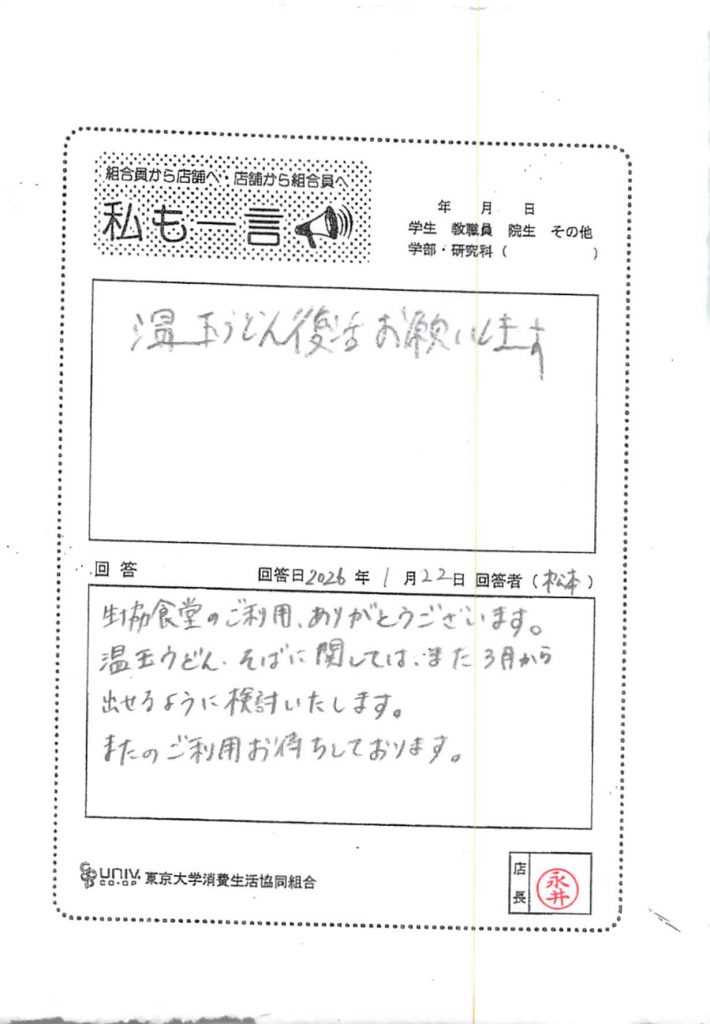 組合員から店舗へ 店舗から組合員へ
私も一言
年 月 日
学生 教職員 院生 その他
学部・研究科（ ）
温玉うどん復活お願いします
回答 回答日2026年 1月22日 回答者（松本）
生協食堂のご利用、ありがとうございます。
温玉うどん、そばに関しては、また3月から
出せるように検討いたします。
またのご利用お待ちしております。
UNIV. CO-OP 東京大学消費生活協同組合
店長 永井